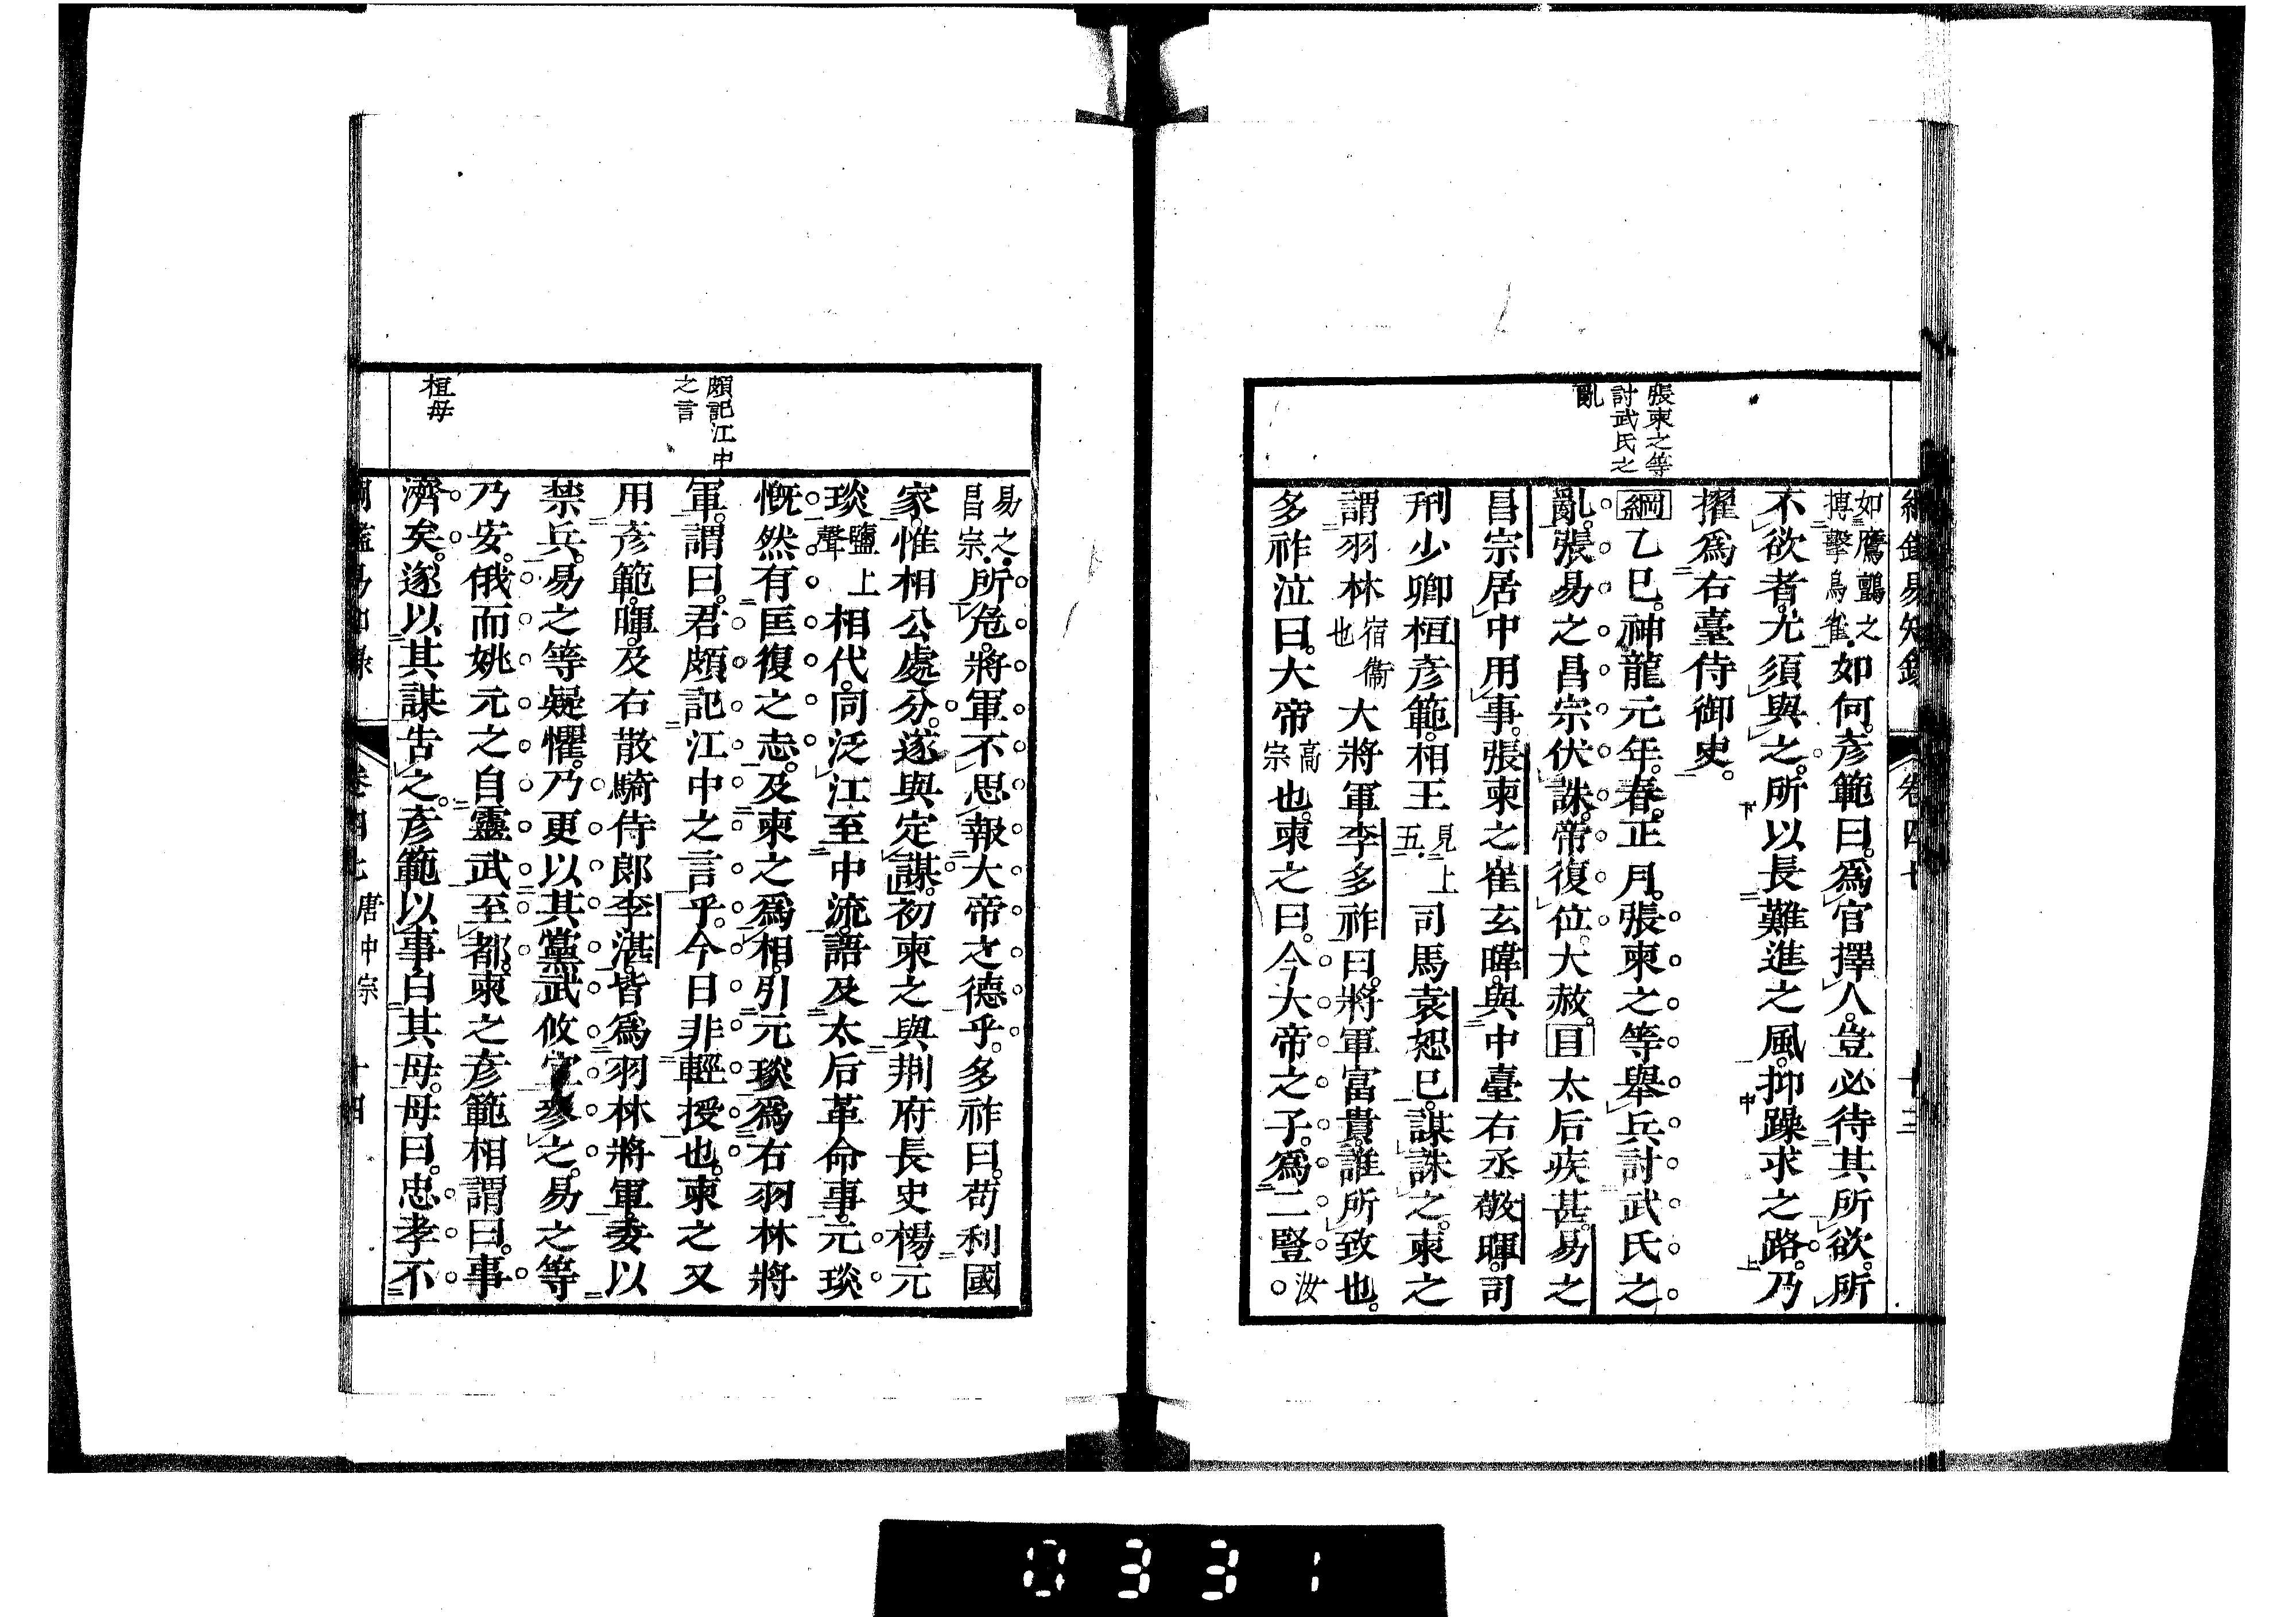 綱鑑易知錄 卷四七 十三
張柬之等
討武氏之
亂
如鷹鸇之搏擊鳥雀如何。彥範曰。爲官擇人。豈必待其所欲。所
不欲者。尤須與之。所以長難進之風。抑躁求之路。乃
擢爲右臺侍御史。
綱乙巳。神龍元年。春。正月。張柬之等舉兵討武氏之
亂。張易之昌宗伏誅。帝復位。大赦。目太后疾甚。易之
昌宗居中用事。張柬之崔玄暐。與中臺右丞敬暉。司
刑少卿桓彥範。相王見上五司馬袁恕己。謀誅之。柬之
謂羽林宿衞也大將軍李多祚曰。將軍富貴。誰所致也。
多祚泣曰。大帝高宗也。柬之曰。今大帝之子。爲二豎汝
頗記江中
之言
桓母
易之昌宗所危。將軍不思報大帝之德乎。多祚曰。苟利國
家。惟相公處分。遂與定謀。初柬之與荆府長史楊元
琰鹽上聲相代。同泛江至中流。語及太后革命事。元琰
慨然有匡復之志。及柬之爲相。引元琰爲右羽林將
軍。謂曰。君頗記江中之言乎。今日非輕授也。柬之又
用彥範。暉。及右散騎侍郎李湛。皆爲羽林將軍。委以
禁兵。易之等疑懼。乃更以其黨武攸宜參之。易之等
乃安。俄而姚元之自靈武至都。柬之彥範相謂曰。事
濟矣。遂以其謀告之。彥範以事白其母。母曰。忠孝不
綱鑑易知錄 卷四七 唐中宗 十四
0331